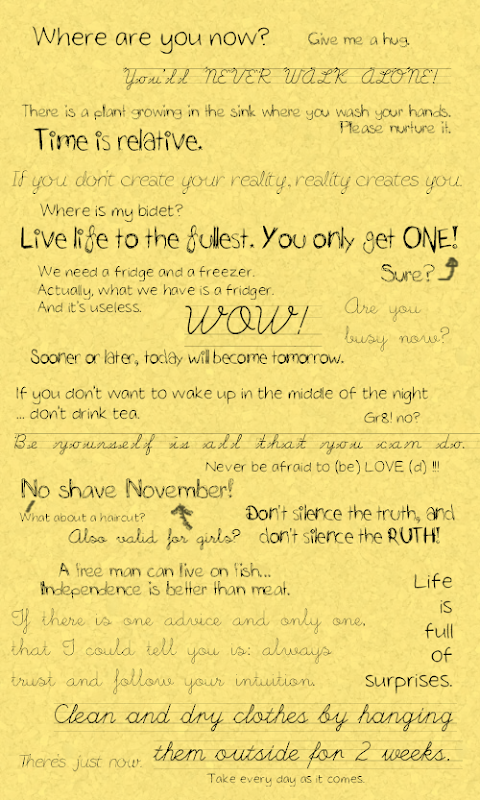 Where are you now?
Give me a hug.
You'll NEVER WALK ALONE!
There is a plant growing in the sink where you wash your hands.
Please nurture it.
Time is relative.
If you don't create your reality, reality creates you.
Where is my bidet?
Live life to the fullest. You only get ONE!
Sure?
We need a fridge and a freezer.
Actually, what we have is a fridger.
And it's useless.
WOW!
Are you
busy now?
Sooner or later, today will become tomorrow.
If you don't want to wake up in the middle of the night
... don't drink tea.
Gr8! no?
Be yourself is all that you can do.
Never be afraid to (be) LOVE (d) !!!
No shave November!
What about a haircut?
Also valid for girls?
Don't silence the truth, and
don't silence the RUTH!
A free man can live on fish...
Independence is better than meat.
Life
is
full
of
surprises.
If there is one advice and only one,
that I could tell you is: always
trust and follow your intuition.
Clean and dry clothes by hanging
them outside for 2 weeks.
There's just now.
Take every day as it comes.